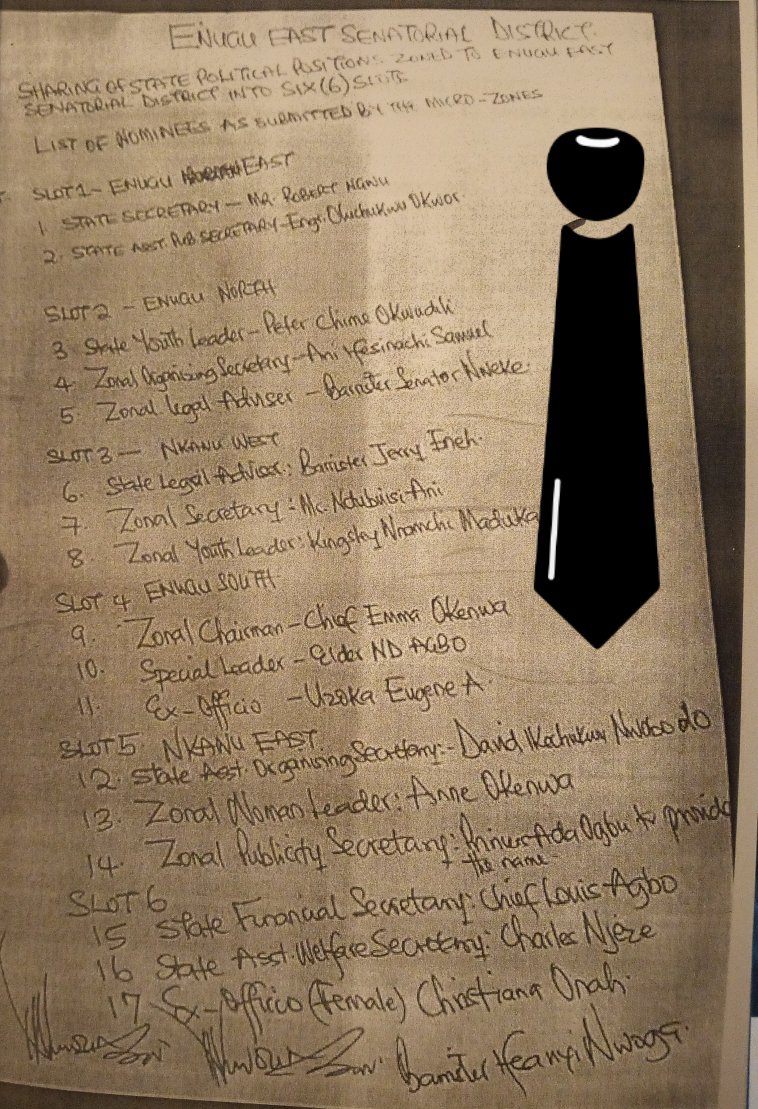 ENUGU EAST SENATORIAL DISTRICT.
SHARING OF STATE POLITICAL POSITIONS ZONED TO ENUGU EAST
SENATORIAL DISTRICT INTO SIX (6) SLOTS
LIST OF NOMINEES AS SUBMITTED BY THE MICRO-ZONES
SLOT 1 - ENUGU EAST
1 STATE SECRETARY - MR. ROBERT NGWU
2. STATE ASST. PUB SECRETARY - Engr. Oluchukwu Okwor.
SLOT 2 - ENUGU NORTH
3 State Youth Leader - Peter Chime Okwudili
4. Zonal Organising Secretary - Ani Ifesinachi Samuel
5. Zonal Legal Adviser - Barrister Senator Nweke.
SLOT 3 - NKANU WEST
6. State Legal Advisor: Barrister Jerry Eneh.
7. Zonal Secretary: Mr. Ndubuisi Ani
8. Zonal Youth Leader: Kingsley Nnamchi Maduka
SLOT 4 ENUGU SOUTH
9. Zonal Chairman - Chief Emma Okenwa
10. Special Leader - Elder ND AGBO
11. Ex-Officio - Uzoka Eugene A.
SLOT 5 NKANU EAST
12. State Asst. Organising Secretary:- David Ikechukwu Nwobodo
13. Zonal Woman Leader: Anne Okenwa
14. Zonal Publicity Secretary: Ada Ogbu to provide
the name
SLOT 6
15 State Financial Secretary: Chief Louis Agbo
16 State Asst. Welfare Secretary: Charles Njeze
17 Ex-Officio (Female) Christiana Onah.
Barrister Ifeanyi Nwoga.